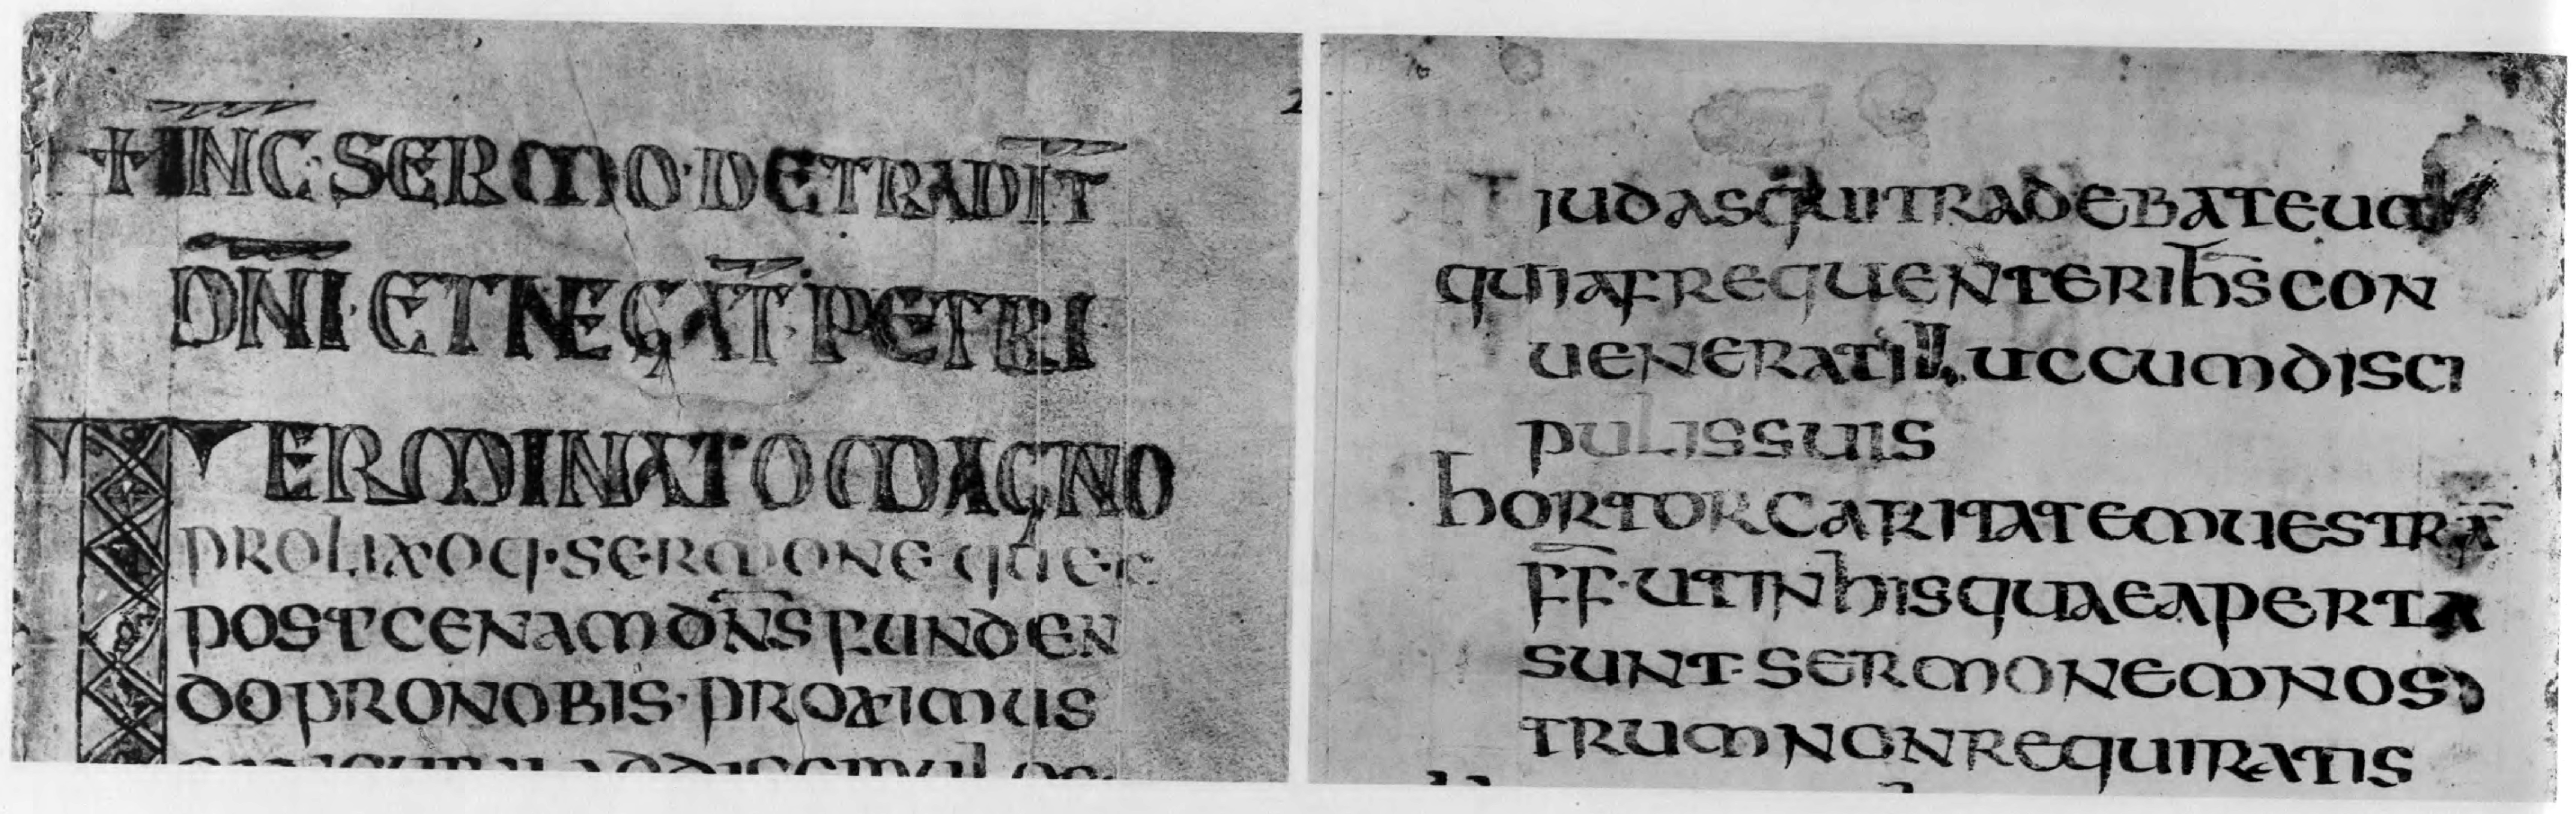 + IN̄C̄· SERMO· DE TRADIT̄
DN̄I· ET NEGAT̄· PETRI
TERMINATO MAGNO
PROLIXOQ· SERMONE QUE
POST CENAM DN̄S FUNDEN
DO PRO NOBIS· PROXIMUS
IUDAS QUI TRADEBAT EUM
QUIA FREQUENTER IH̄S CON
UENERAT ILLUC CUM DISCI
PULIS SUIS
HORTOR CARITATEM UESTRĀ
F̄F̄· UT IN HIS QUAE APERTA
SUNT· SERMONEM NOS
TRUM NON REQUIRATIS